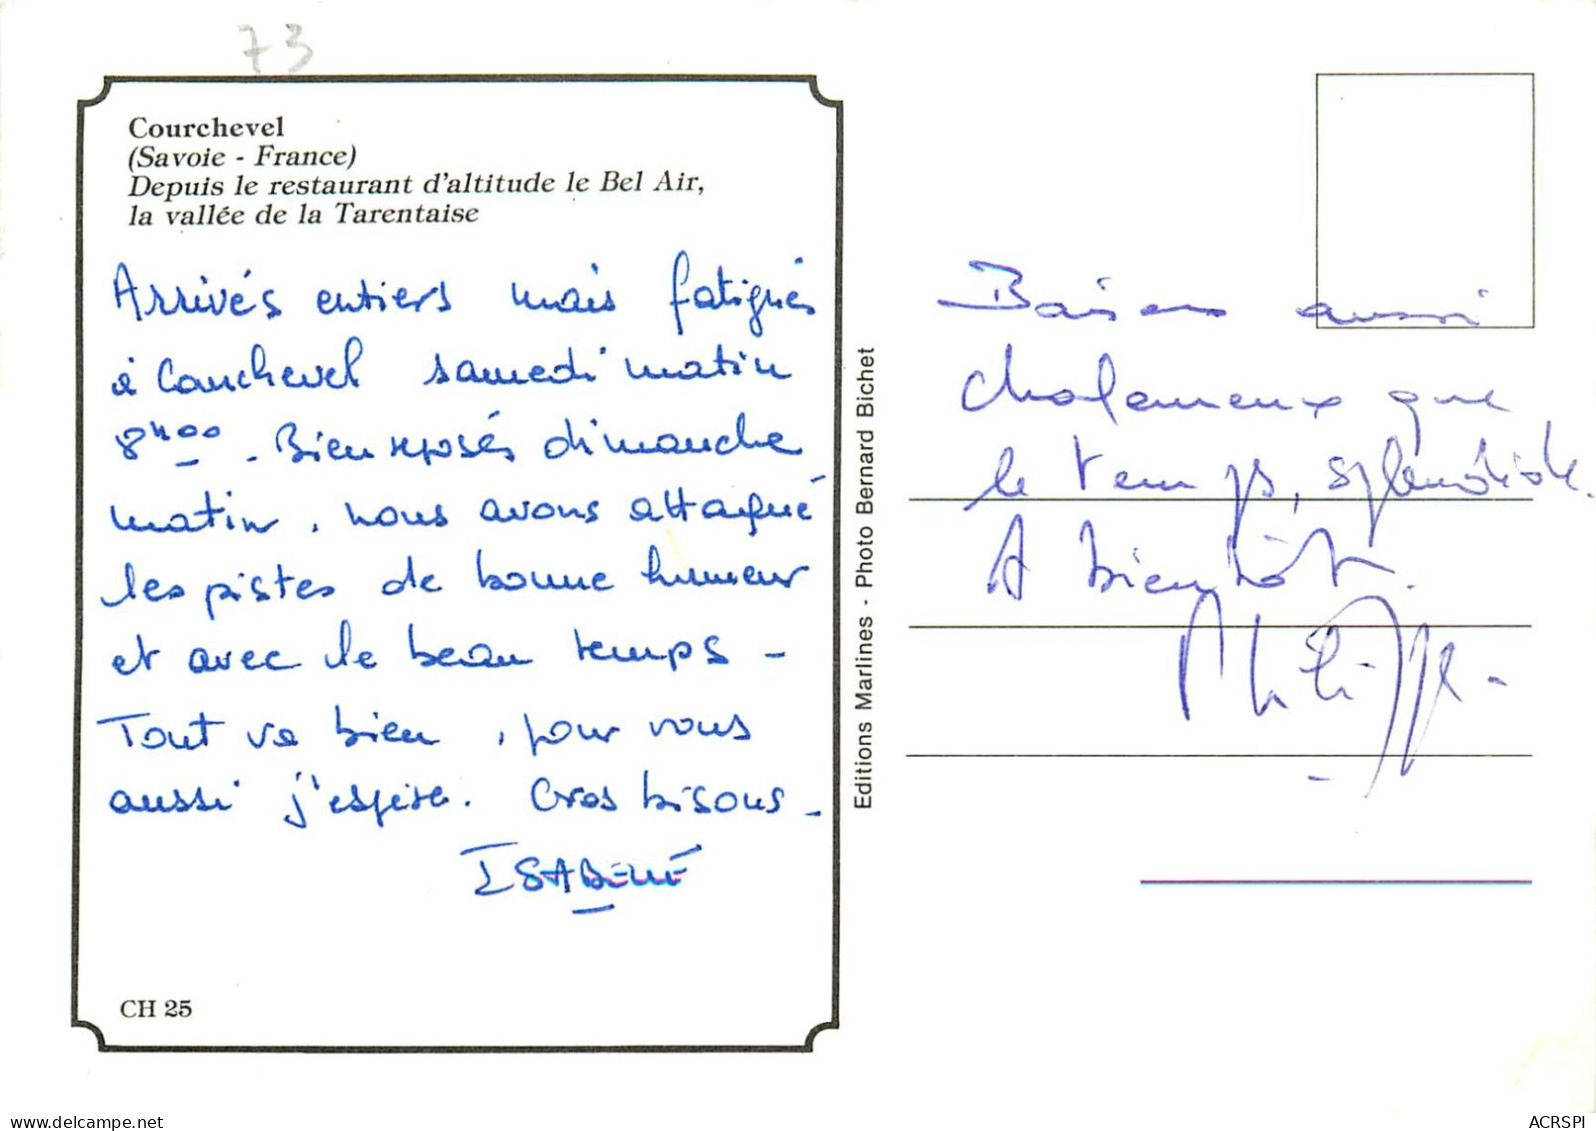 73
Courchevel
(Savoie - France)
Depuis le restaurant d'altitude le Bel Air,
la vallée de la Tarentaise
Arrivés entiers mais fatigués
à Courchevel samedi matin
8h00. Bien reposés dimanche
matin, nous avons attaqué
les pistes de bonne humeur
et avec le beau temps -
Tout va bien, pour vous
aussi j'espère. Gros bisous -
ISABELLE
CH 25
Editions Marlines - Photo Bernard Bichet
Baisers aussi
chaleureux que
le temps, splendide.
A bientôt.
Philippe -
www.delcampe.net
ACRSPI